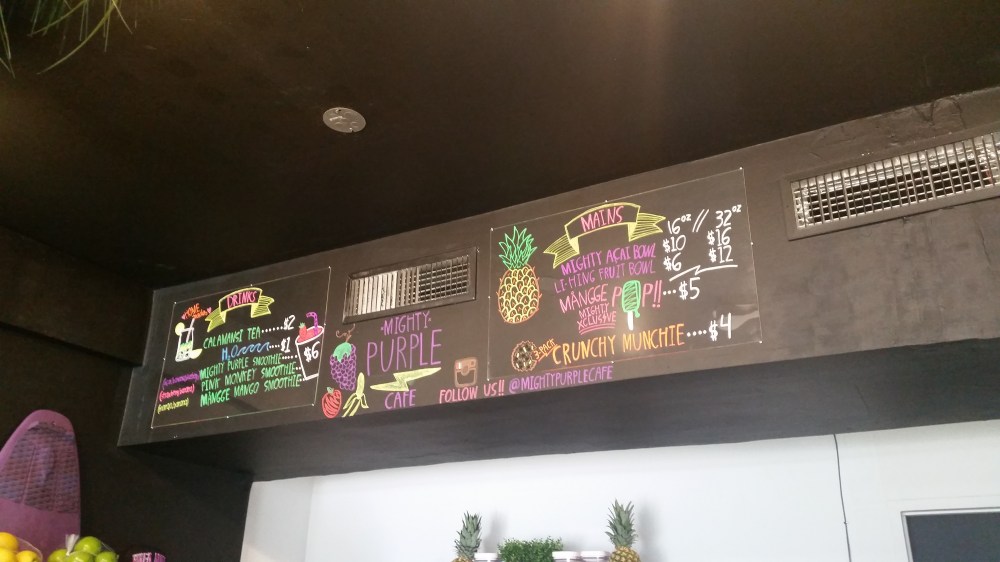 DRINKS
CALAMANSI TEA......$2
H2O......$1
MIGHTY PURPLE SMOOTHIE...
PINK MONKEY SMOOTHIE...
MANGGE MANGO SMOOTHIE...
$6
·MIGHTY·
PURPLE
CAFE
FOLLOW US!! @MIGHTYPURPLECAFE
MAINS
16oz // 32oz
MIGHTY AÇAI BOWL $10 $16
LI-HING FRUIT BOWL $6 $12
MANGGE POP!!...$5
MIGHTY
XCLUSIVE
CRUNCHY MUNCHIE....$4